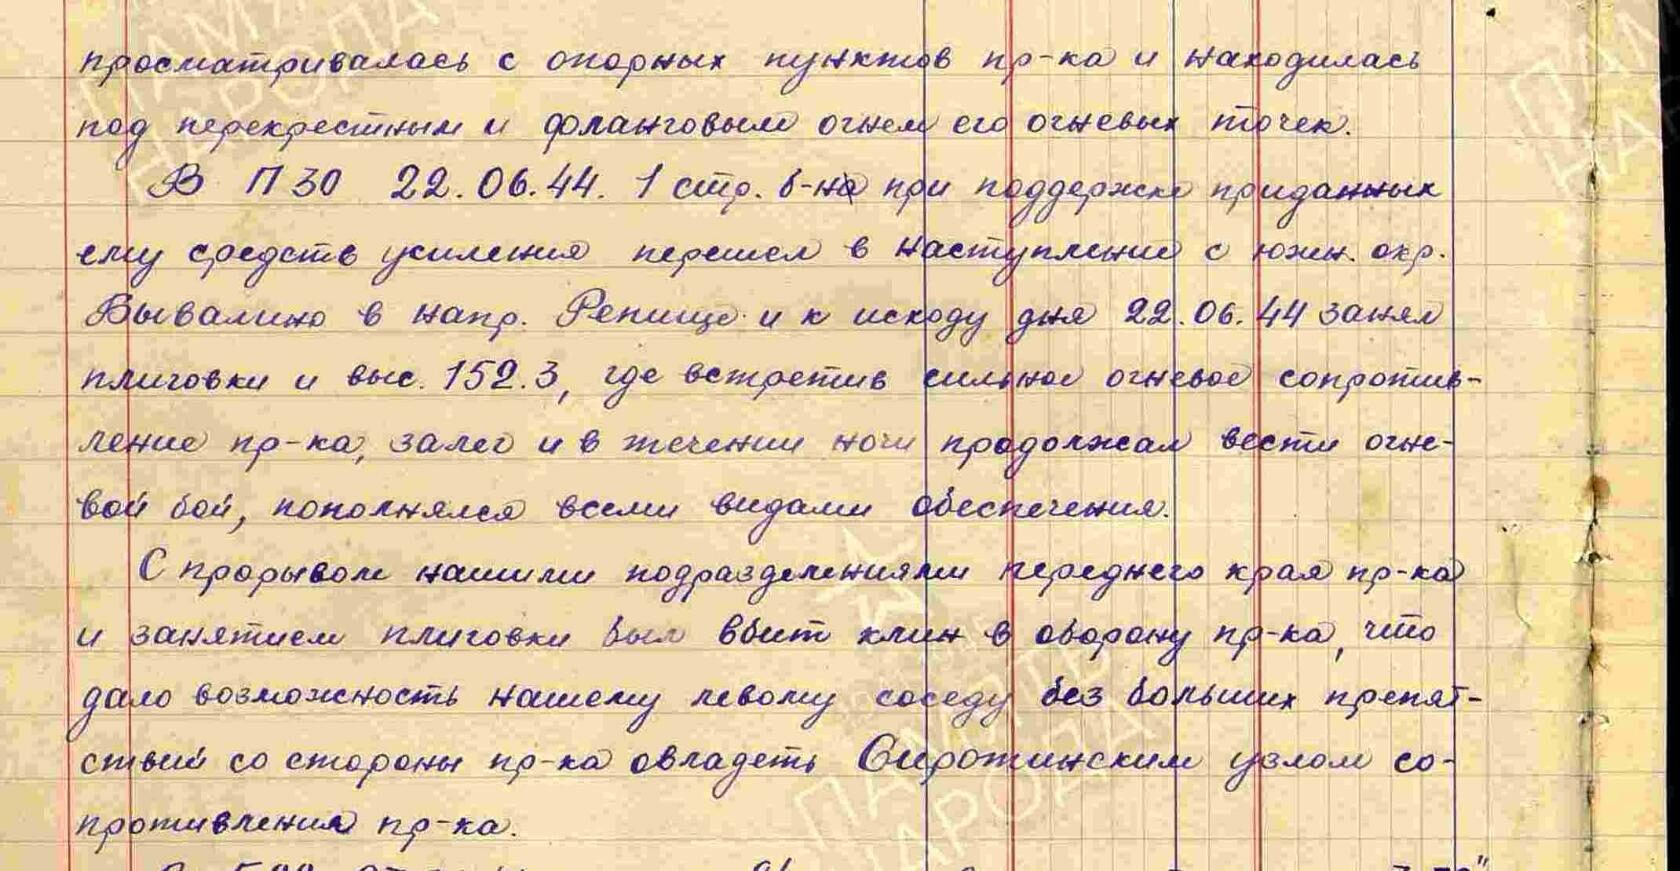 просматривалась с опорных пунктов пр-ка и находилась
под перекрестным и фланговым огнем его огневых точек.
В 11 30 22.06.44. 1 стр. б-на при поддержке приданных
ему средств усиления перешел в наступление с южн. окр.
Вывалино в напр. Репище и к исходу дня 22.06.44 занял
плиговки и выс. 152.3, где встретив сильное огневое сопротив-
ление пр-ка, залег и в течении ночи продолжал вести огне-
вой бой, пополнялся всеми видами обеспечения.
С прорывом нашими подразделениями переднего края пр-ка
и занятием плиговки был вбит клин в оборону пр-ка, что
дало возможность нашему левому соседу без больших препят-
ствий со стороны пр-ка овладеть Сиротинским узлом со-
противления пр-ка.
ПАМЯТЬ
НАРОДА